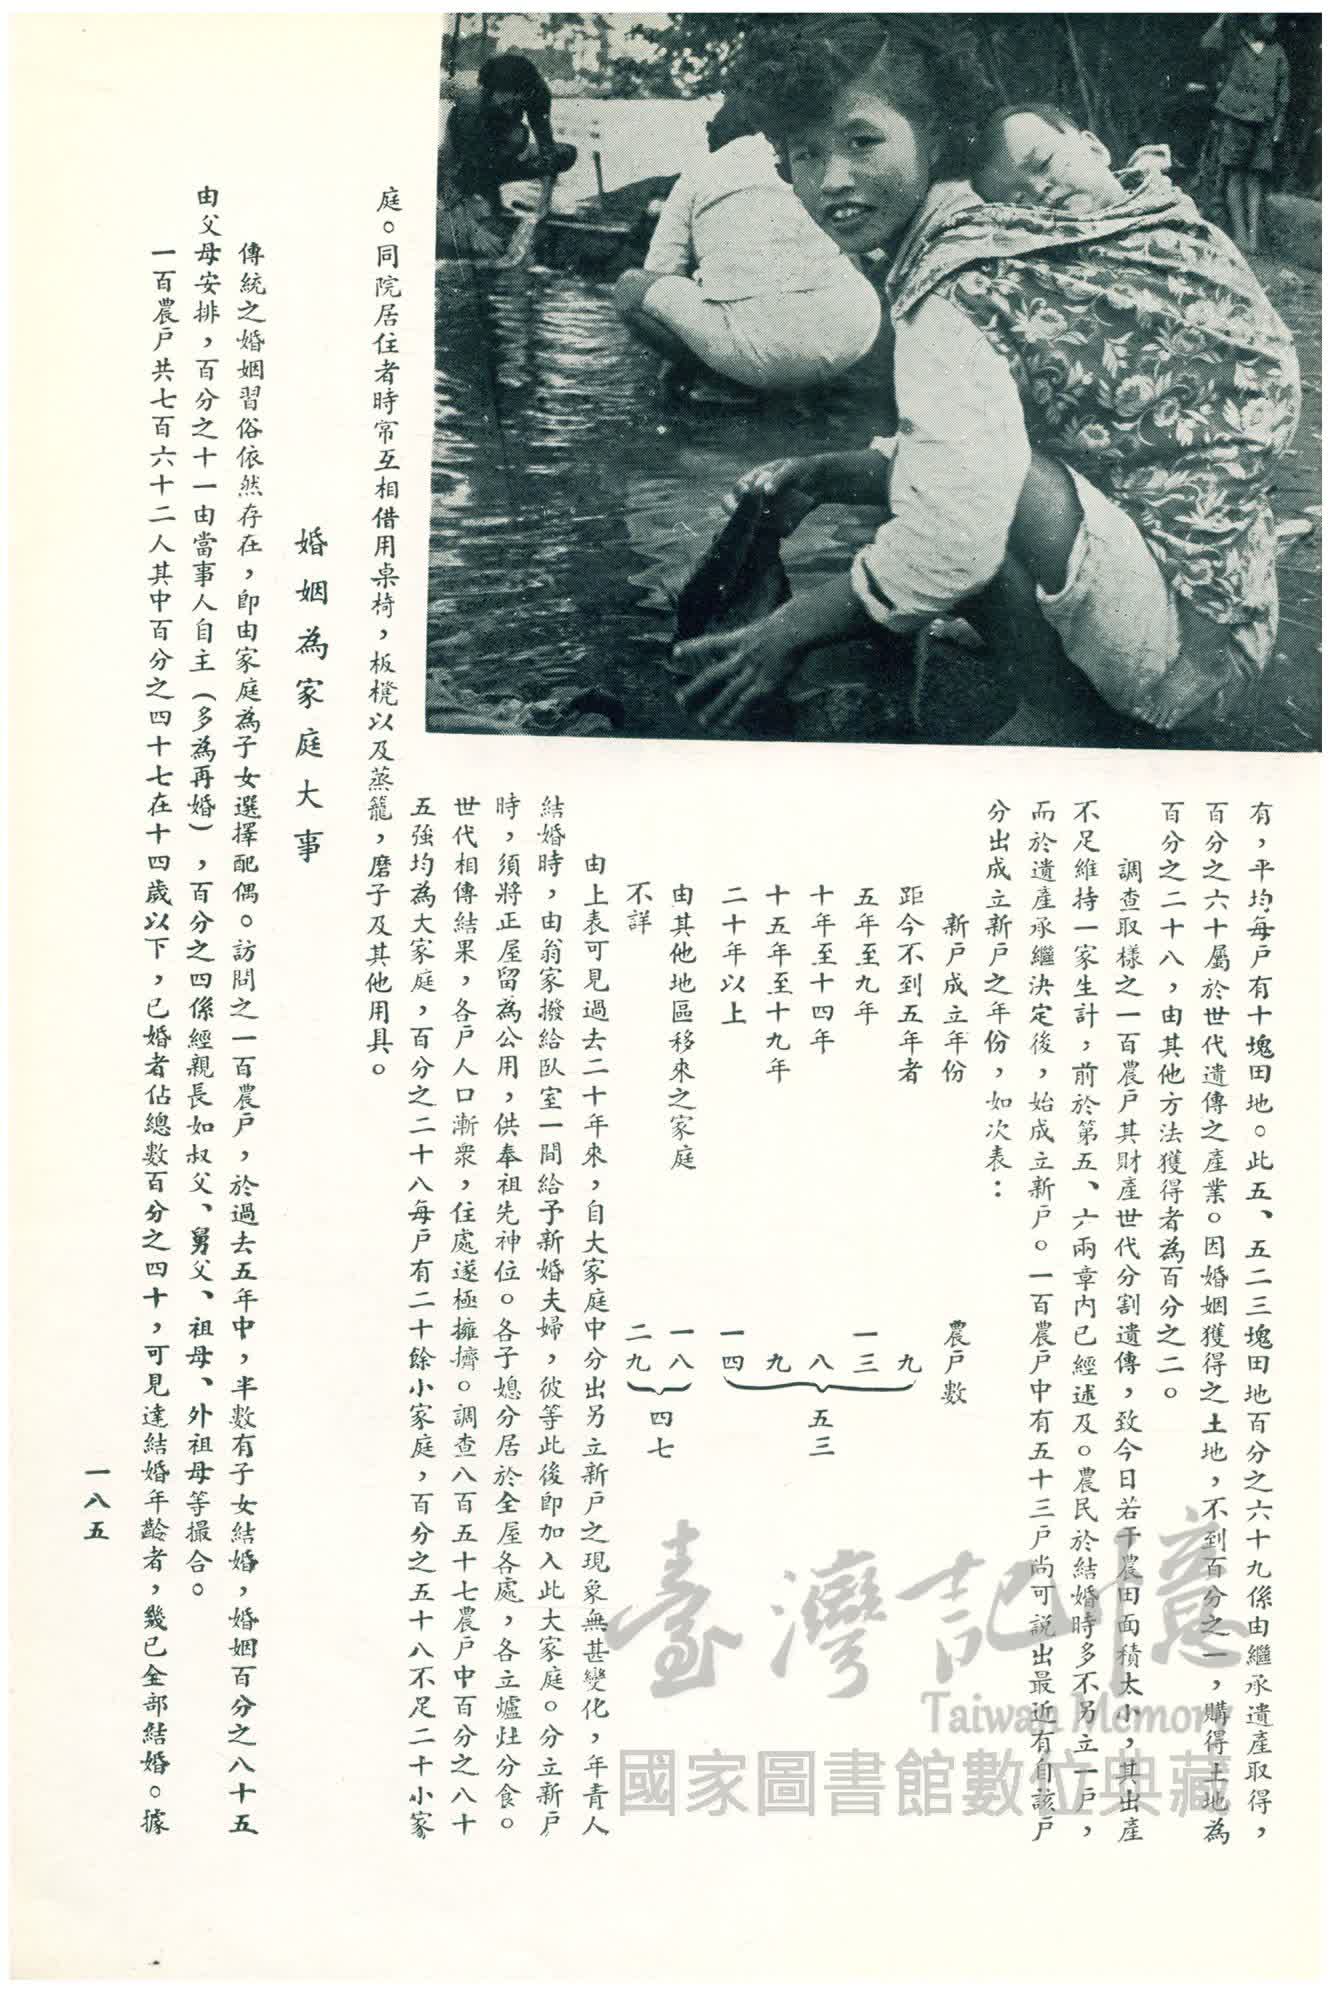 有，平均每戶有十塊田地。此五、五二三塊田地百分之六十九係由繼承遺產取得，
百分之六十屬於世代遺傳之產業。因婚姻獲得之土地，不到百分之一，購得土地為
百分之二十八，由其他方法獲得者為百分之二。
調查取樣之一百農戶其財產世代分割遺傳，致今日若干農田面積太小，其出產
不足維持一家生計，前於第五、六兩章內已經述及。農民於結婚時多不另立一戶，
而於遺產承繼決定後，始成立新戶。一百農戶中有五十三戶尚可說出最近有自該戶
分出成立新戶之年份，如次表：
新戶成立年份　農戶數
距今不到五年者　九
五年至九年　一三
十年至十四年　八
十五年至十九年　九
二十年以上　一四
五三
由其他地區移來之家庭　一八
不詳　二九
四七
由上表可見過去二十年來，自大家庭中分出另立新戶之現象無甚變化，年青人
結婚時，由翁家撥給臥室一間給予新婚夫婦，彼等此後即加入此大家庭。分立新戶
時，須將正屋留為公用，供奉祖先神位。各子媳分居於全屋各處，各立爐灶分食。
世代相傳結果，各戶人口漸衆，住處遂極擁擠。調查八百五十七農戶中百分之八十
五強均為大家庭，百分之二十八每戶有二十餘小家庭，百分之五十八不足二十小家
庭。同院居住者時常互相借用桌椅，板櫈以及蒸籠，磨子及其他用具。
婚姻為家庭大事
傳統之婚姻習俗依然存在，即由家庭為子女選擇配偶。訪問之一百農戶，於過去五年中，半數有子女結婚，婚姻百分之八十五
由父母安排，百分之十一由當事人自主（多為再婚），百分之四係經親長如叔父、舅父、祖母、外祖母等撮合。
一百農戶共七百六十二人其中百分之四十七在十四歲以下，已婚者佔總數百分之四十，可見達結婚年齡者，幾已全部結婚。據
一八五
臺灣記憶
Taiwan Memory
國家圖書館數位典藏